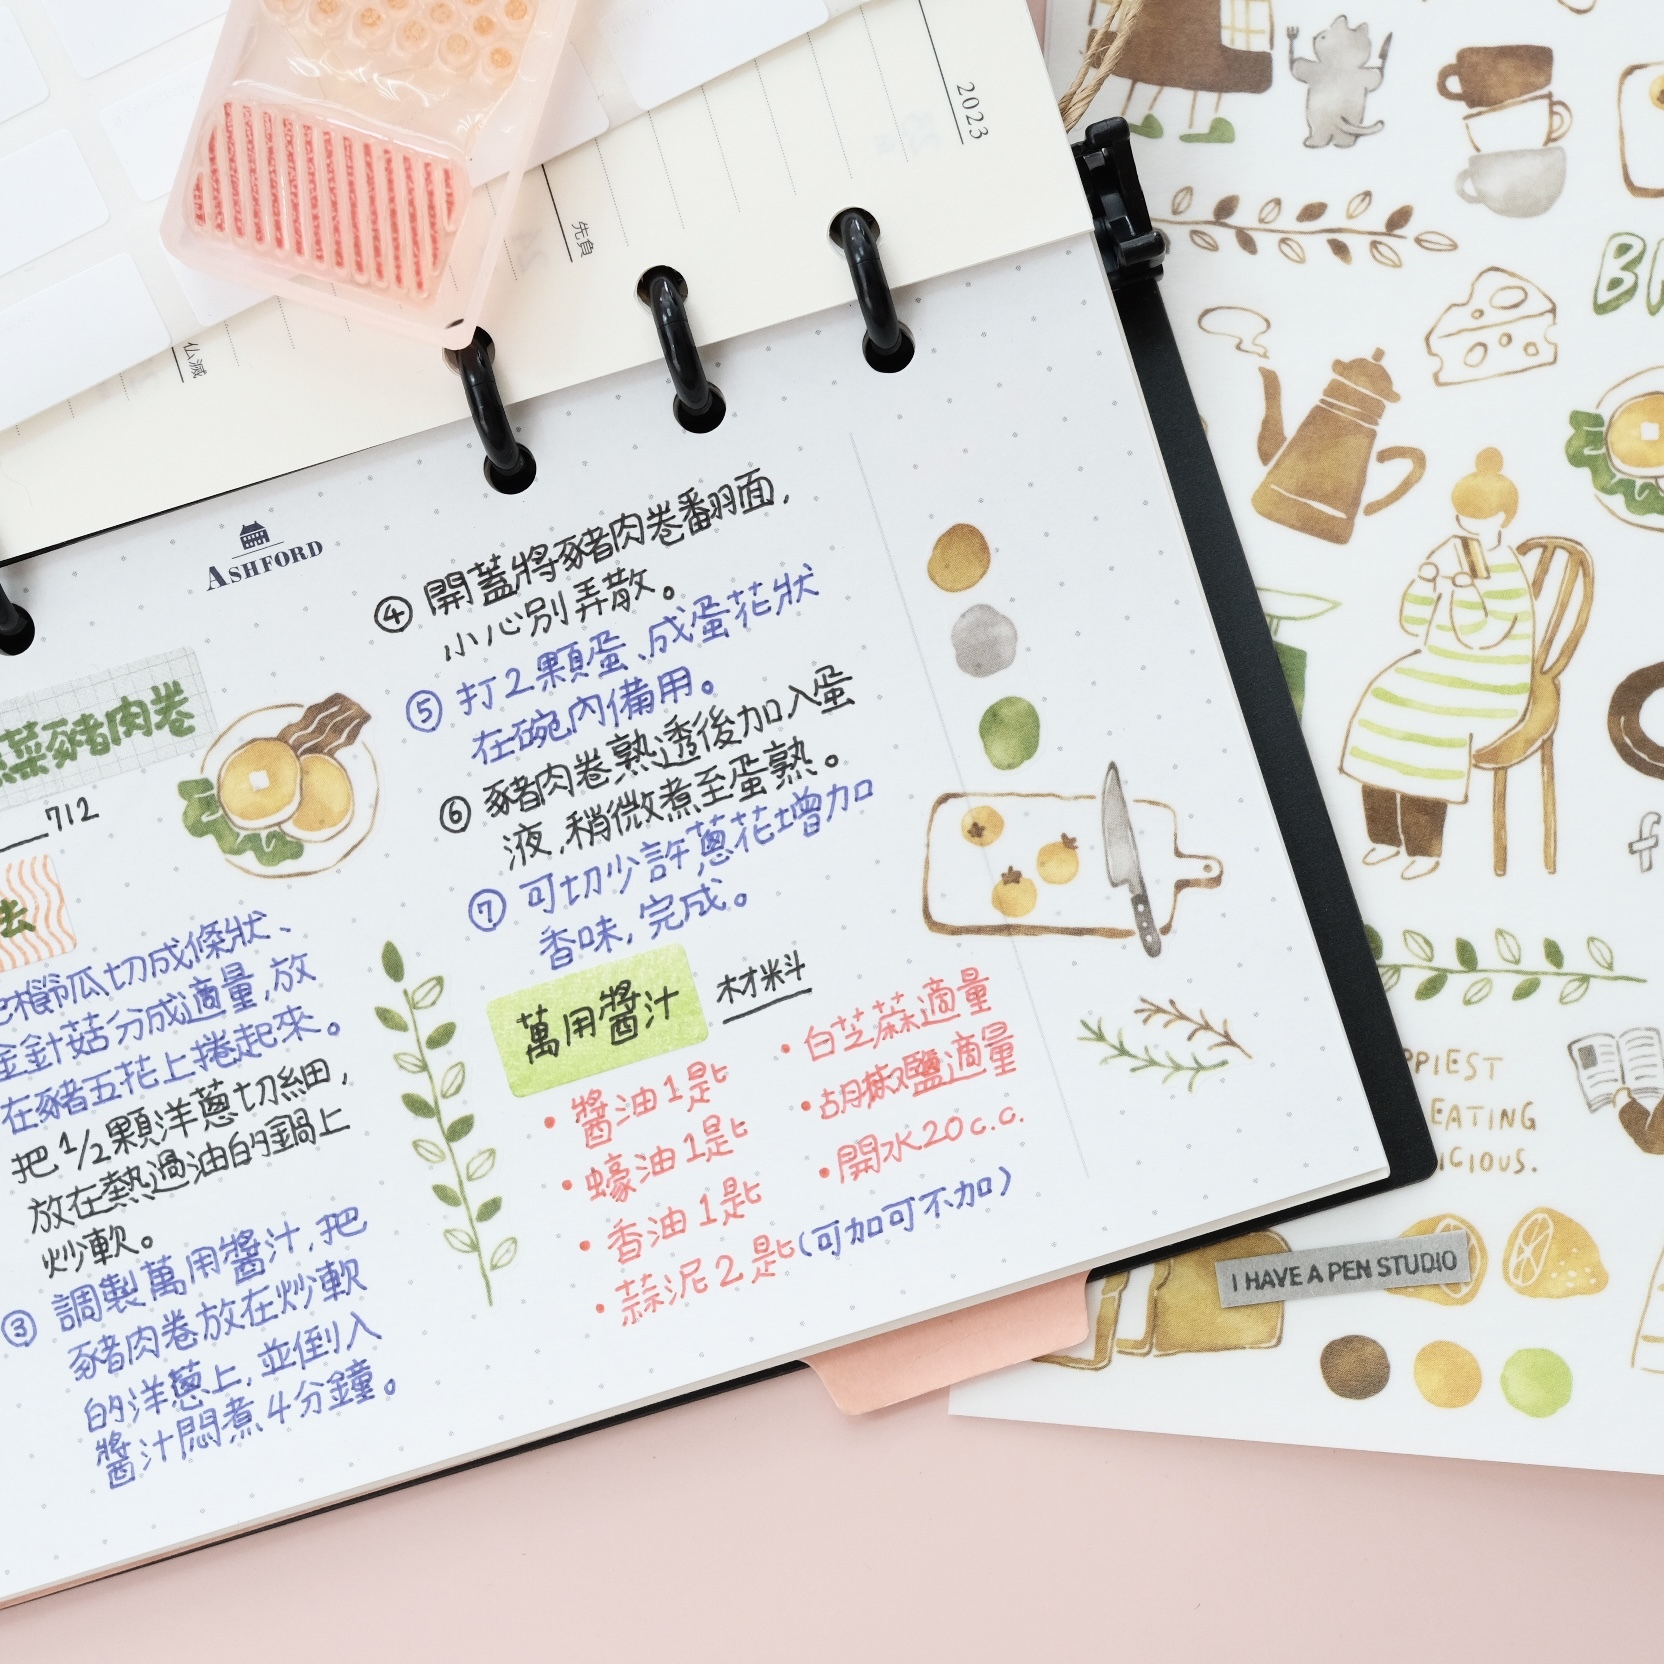 2023
先負
仏滅
ASHFORD
菜豬肉卷
712
法
把櫛瓜切成條狀、
金針菇分成適量,放
在豬五花上捲起來。
把1/2顆洋蔥切細,
放在熱過油的鍋上
炒軟。
③ 調製萬用醬汁,把
豬肉卷放在炒軟
的洋蔥上,並倒入
醬汁悶煮4分鐘。
④ 開蓋將豬肉卷翻面,
小心別弄散。
⑤ 打2顆蛋、成蛋花狀
在碗內備用。
⑥ 豬肉卷熟透後加入蛋
液,稍微煮至蛋熟。
⑦ 可切少許蔥花增加
香味,完成。
萬用醬汁 材料
• 醬油1匙
• 蠔油1匙
• 香油1匙
• 蒜泥2匙(可加可不加)
• 白芝蔴適量
• 胡椒鹽適量
• 開水20c.c.
PPIEST
EATING
ICIOUS.
I HAVE A PEN STUDIO